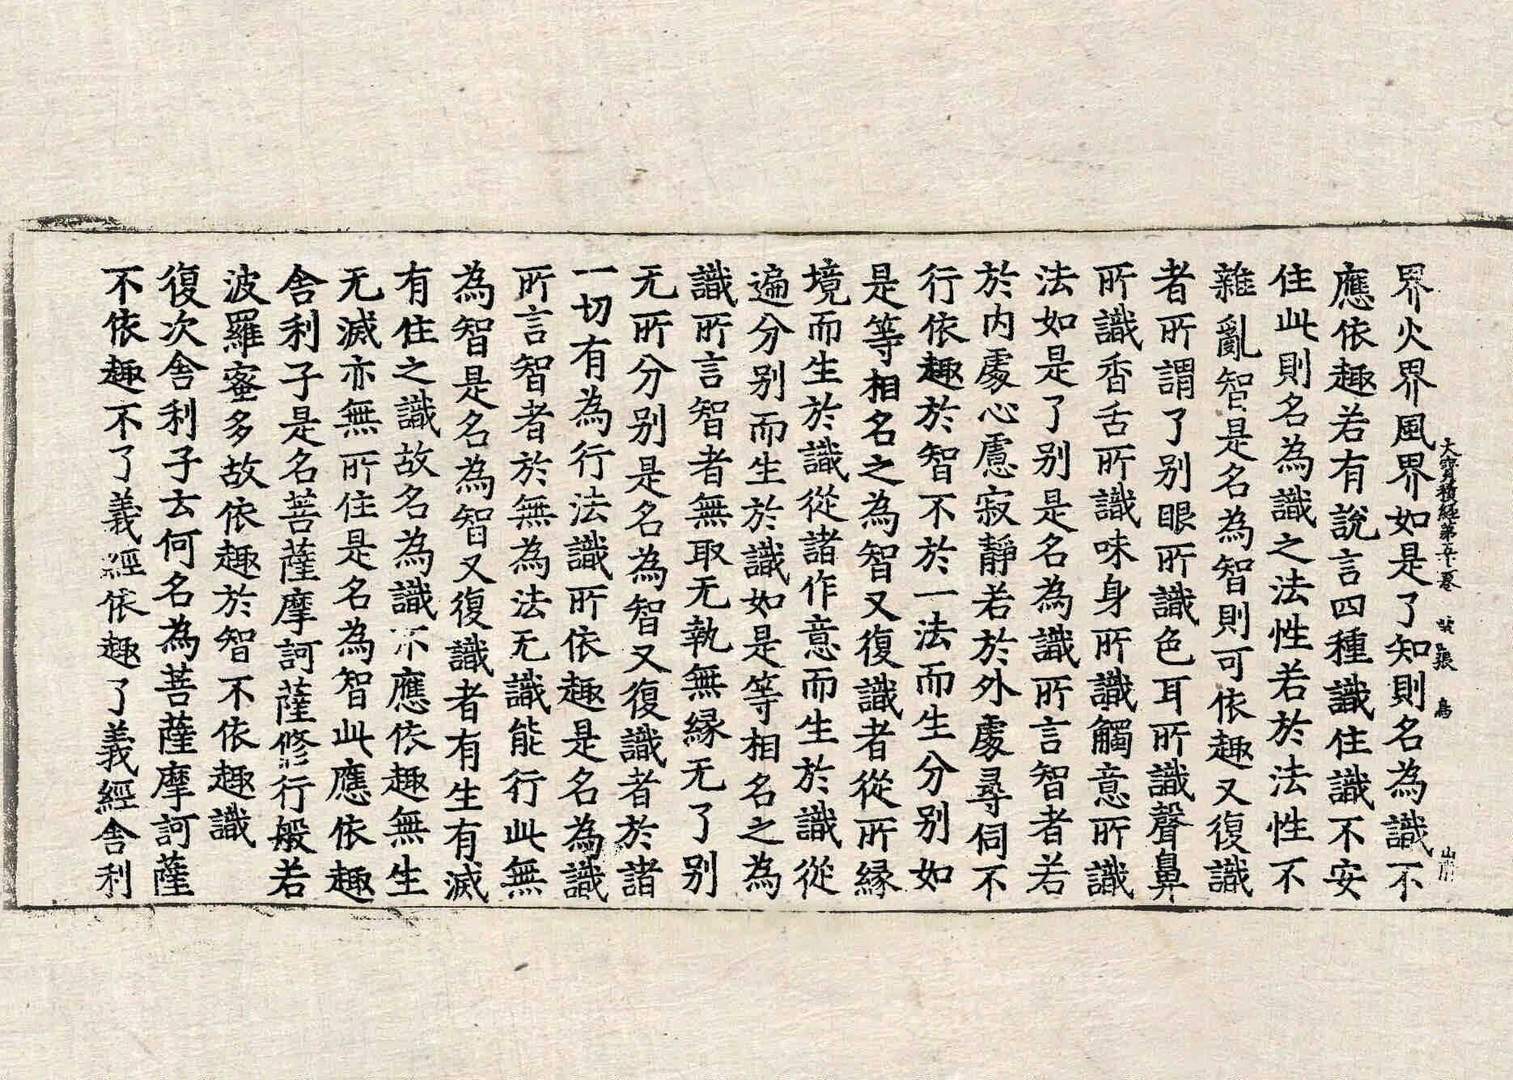 大寶積經第五十二卷 張 鳥
界火界風界如是了知則名為識不
應依趣若有說言四種識住識不安
住此則名為識之法性若於法性不
雜亂智是名為智則可依趣又復識
者所謂了别眼所識色耳所識聲鼻
所識香舌所識味身所識觸意所識
法如是了别是名為識所言智者若
於内處心慮寂靜若於外處尋伺不
行依趣於智不於一法而生分别如
是等相名之為智又復識者從所緣
境而生於識從諸作意而生於識從
遍分别而生於識如是等相名之為
識所言智者無取无執無緣无了别
无所分别是名為智又復識者於諸
一切有為行法識所依趣是名為識
所言智者於無為法无識能行此無
為智是名為智又復識者有生有滅
有住之識故名為識不應依趣無生
无滅亦無所住是名為智此應依趣
舍利子是名菩薩摩訶薩修行般若
波羅蜜多故依趣於智不依趣識
復次舍利子云何名為菩薩摩訶薩
不依趣不了義經依趣了義經舍利